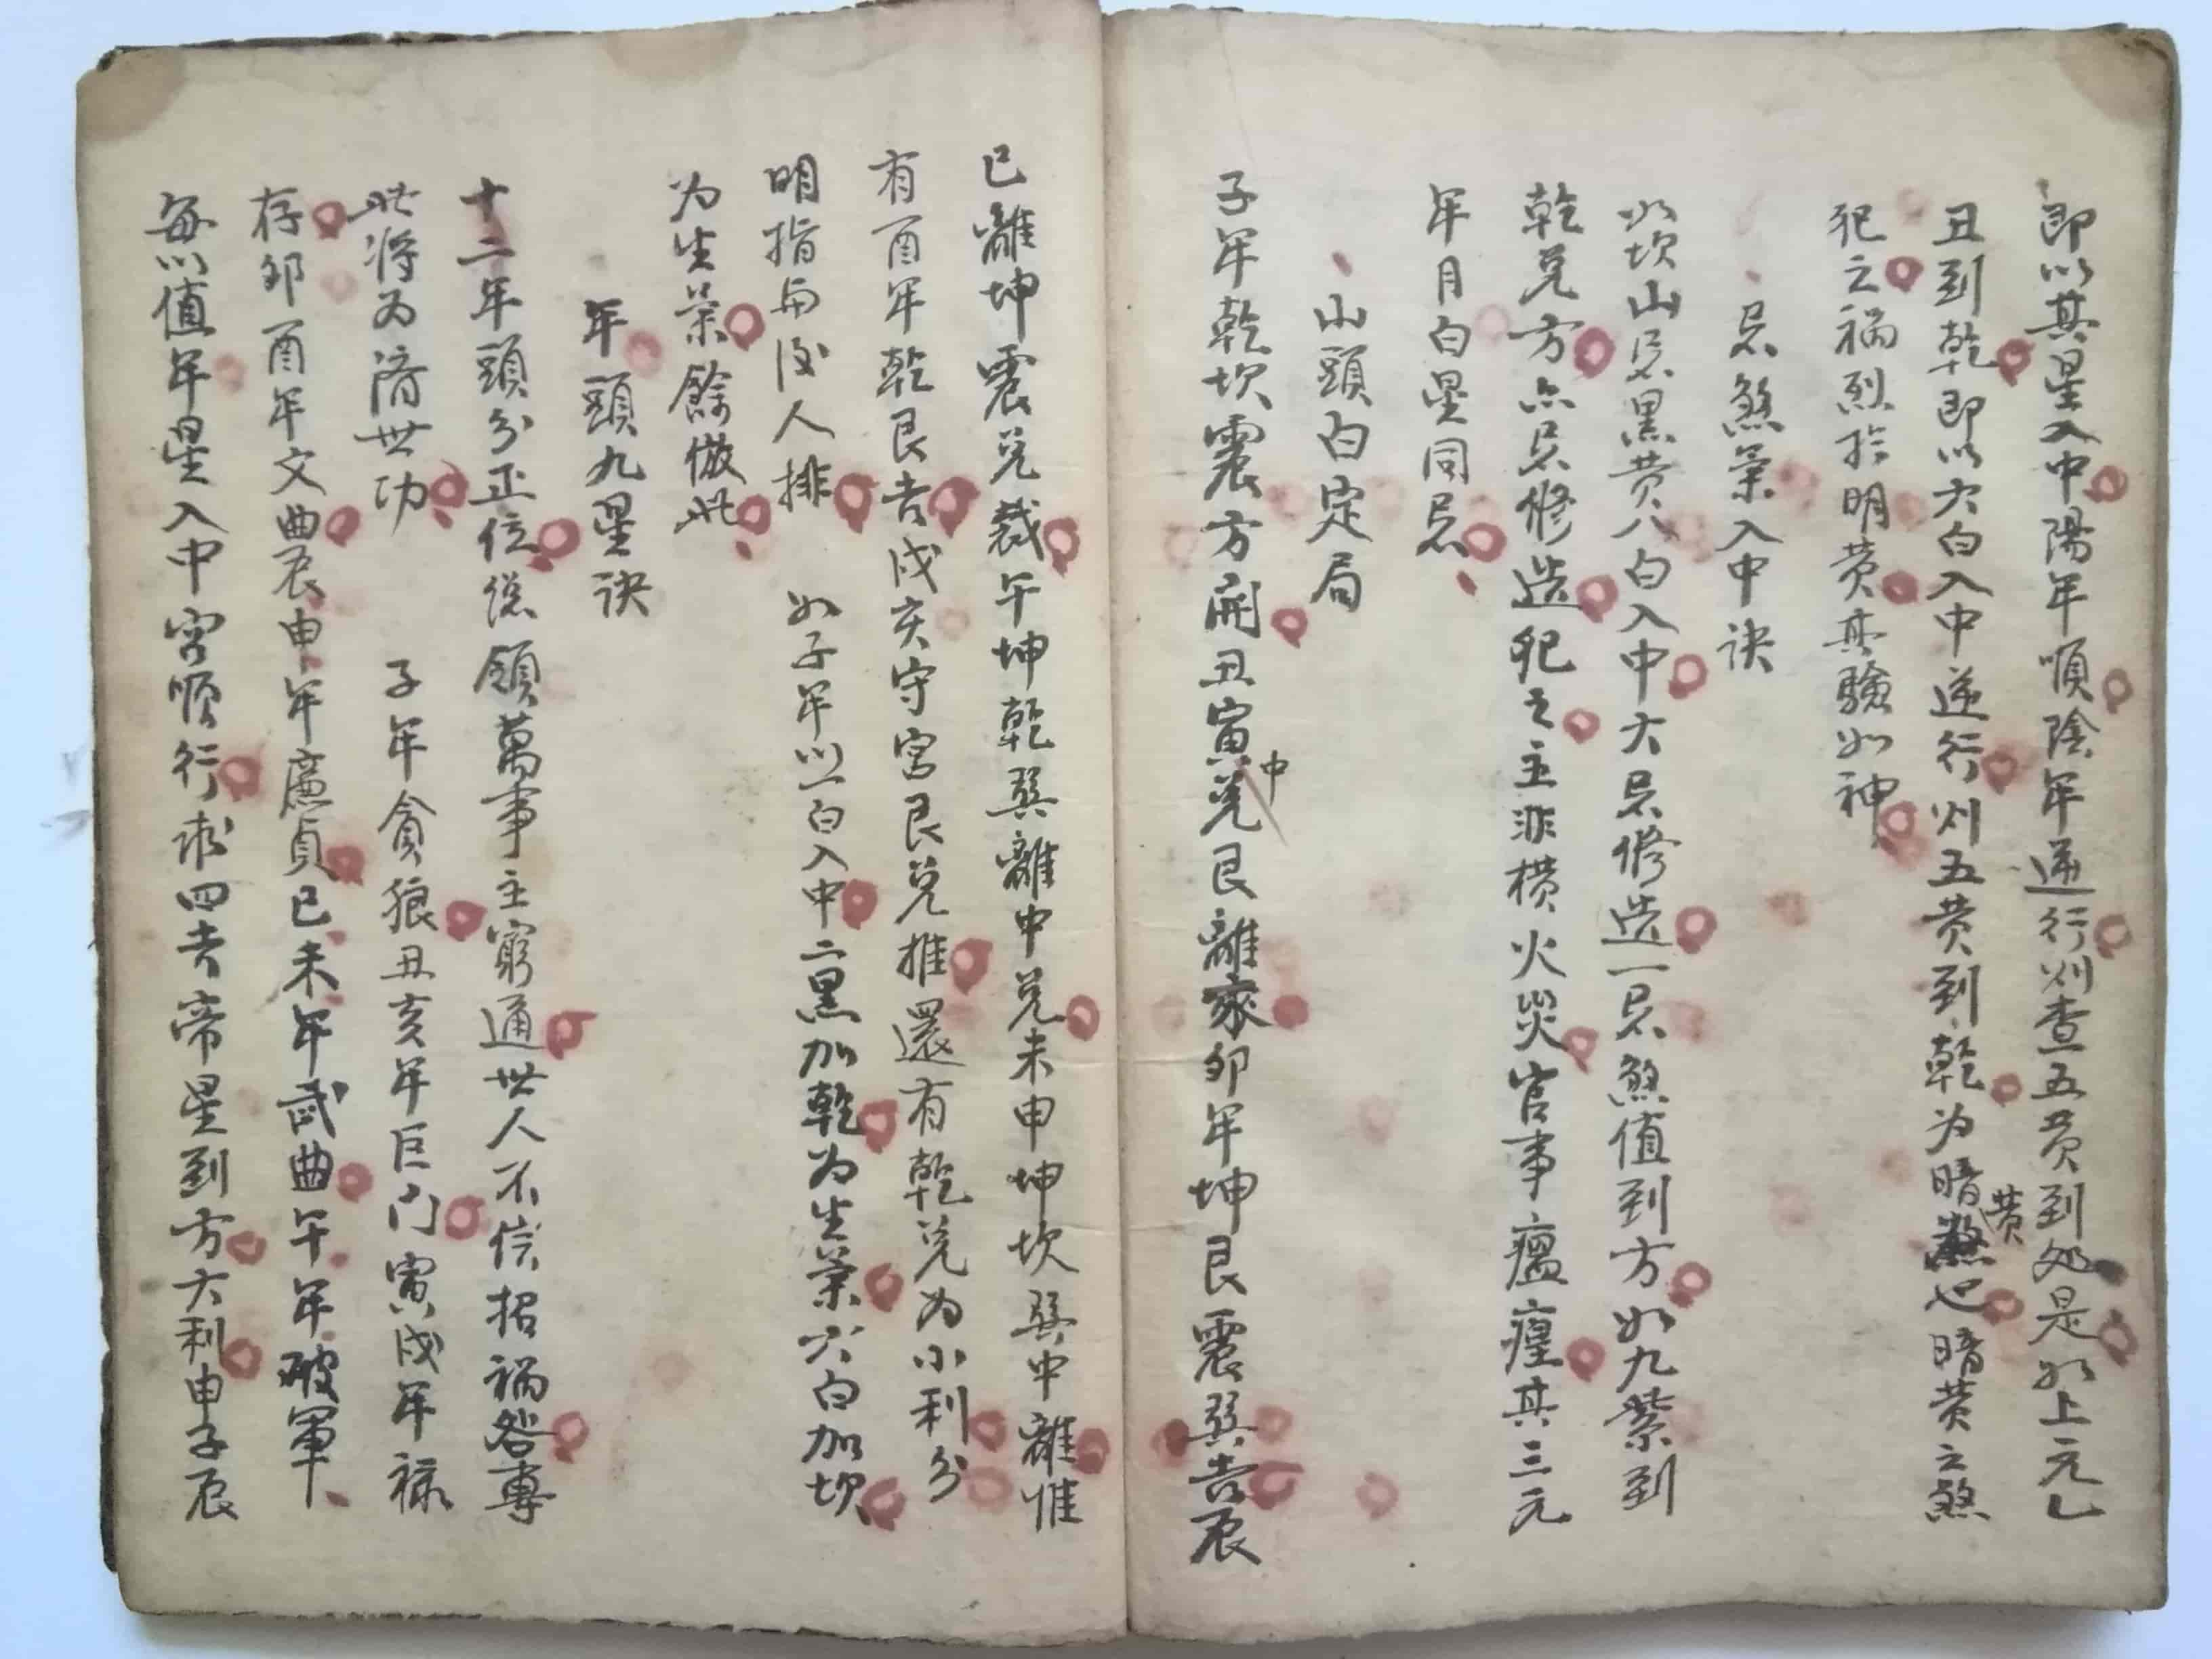 即以其星入中陽年順陰年逆行则查五黄到处是如上元乙
丑到乾即以六白入中逆行刈五黄到乾为暗黄也暗黄之煞
犯之禍烈扵明黄其驗如神
忌煞葉入中訣
如坎山忌黑黄八白入中大忌修造一忌煞值到方如九紫到
乾兑方亦忌修造犯之主非横火災官事瘟瘟其三元
年月白星同忌
山頭白定局
子年乾坎震方開丑寅中兑艮離家卯年坤艮震巽吉辰
巳離坤震兑裁午坤乾巽離中兑未申坤坎巽中離惟
有酉年乾艮吉戌亥守宮艮兑推還有乾兑为小利分
明指与後人排 如子年以一白入中二黑加乾为生葉六白加坎
为生葉餘倣此
年頭九星訣
十二年頭分正位總領萬事主窮通世人不信招禍咎專
此將为濟世功 子年貪狼丑亥年巨门寅戌年禄
存卯酉年文曲辰申年廉貞巳未年武曲午年破軍
每以值年星入中宮順行求四吉帝星到方大利申子辰